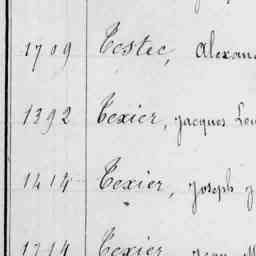 1709 Testec, Alexan
1392 Texier, Jacques Lou
1414 Texier, Joseph
1714 Texier Jean